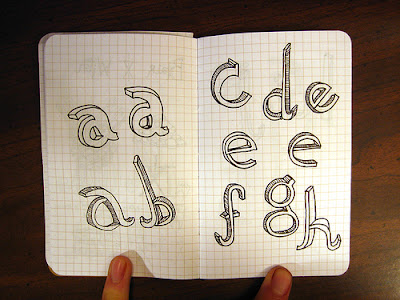 a a
a b
c d e
e e
f g h